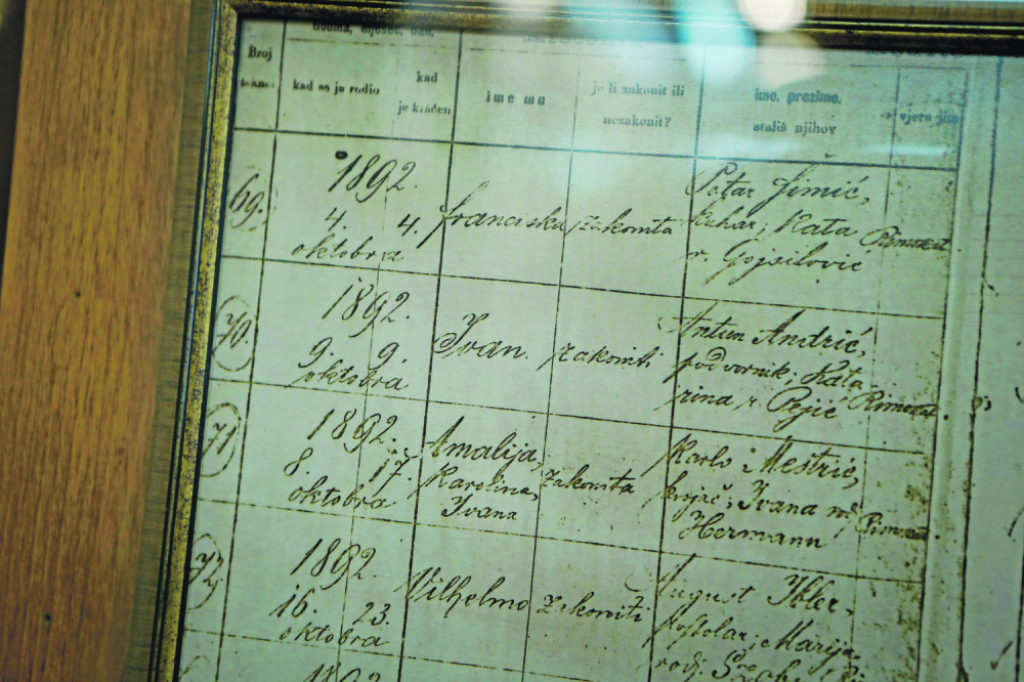 Broj
kad se je rodio
kad
je kršćen
ime mu
je li zakonit ili
nezakonit?
ime, prezime,
stališ njihov
69.
1892.
4. 4.
oktobra
Franciska
zakonita
Petar Šimić,
kuhar; Kata
r. Gojsilović
Rimokat.
70.
1892.
9. 9.
oktobra
Ivan.
zakoniti
Antun Andrić,
podvornik; Kata-
rina r. Pejić
Rimokat.
71
1892.
8. 17.
oktobra
Amalija,
Karolina,
Ivana
zakonita
Karlo Mestrić,
krojač; Ivana
Hermann
Rimokat.
72
1892.
16. 23.
oktobra
Vilhelmo
zakoniti
August Ibler,
postolar; Marija
rodj.
1892